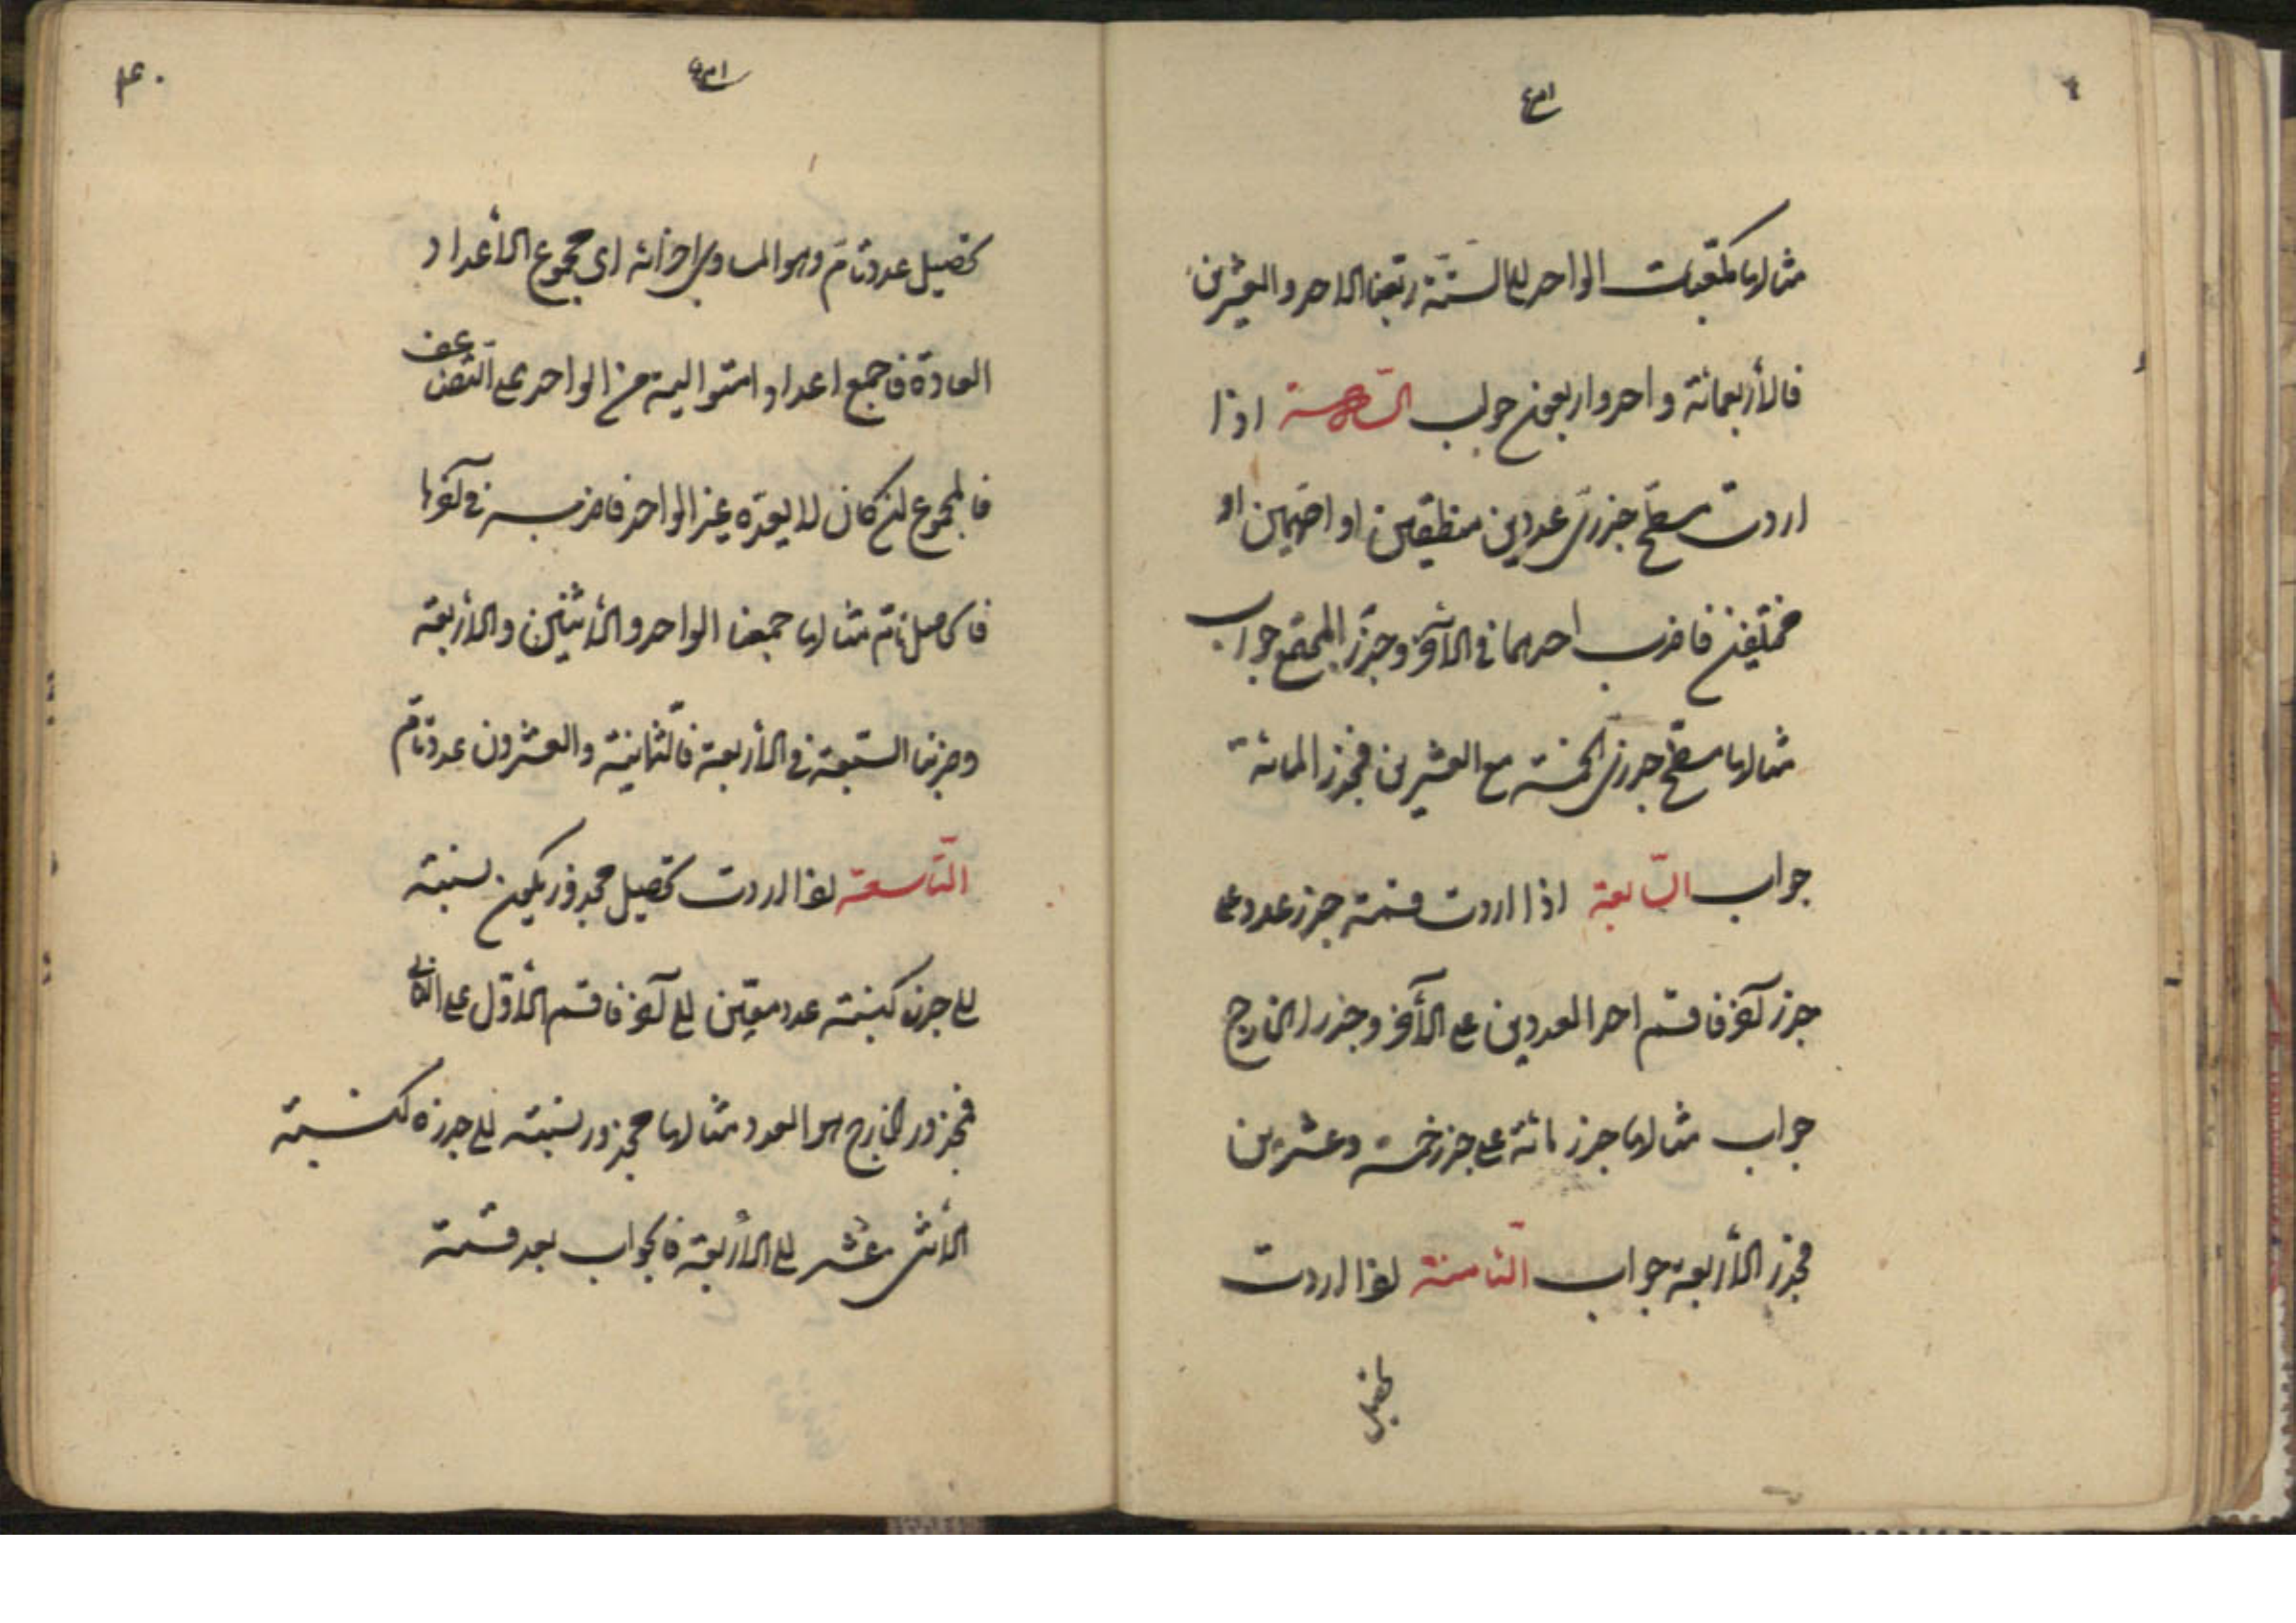 مثالها مكعّبات الواحد الى السّتّة ربّعنا الاحد والعشرين
فالأربعمائة واحد واربعون جواب السّادسة اذا
اردت مسطّح جذرى عددين منطقين او اصمّين او
مختلفين فاضرب احدهما فى الآخر وجذر المجتمع جواب
مثالها مسطّح جذرى الخمسة مع العشرين فجذر المائة
جواب السّابعة اذا اردت قسمة جذر عدد على
جذر آخر فاقسم احد العددين على الآخر وجذر الخارج
جواب مثالها جذر مائة على جذر خمسة وعشرين
فجذر الأربعة جواب الثّامنة اذا اردت
تحصيل
۴۰
تحصيل عدد تامّ وهو المساوى اجزائه اى مجموع الأعداد
العادّة فاجمع اعدادا متوالية من الواحد على التّضاعف
فالمجموع ان كان لا يعدّه غير الواحد فاضربه فى آخرها
فالحاصل تامّ مثالها جمعنا الواحد والأثنين والأربعة
وضربنا السّبعة فى الأربعة فالثّمانية والعشرون عدد تامّ
التّاسعة اذا اردت تحصيل مجذور يكون نسبته
الى جذره كنسبة عدد معيّن الى آخر فاقسم الأوّل على الثّانى
فمجذور الخارج هو العدد مثالها مجذور نسبته الى جذره كنسبة
الأثنى عشر الى الأربعة فالجواب بعد قسمة